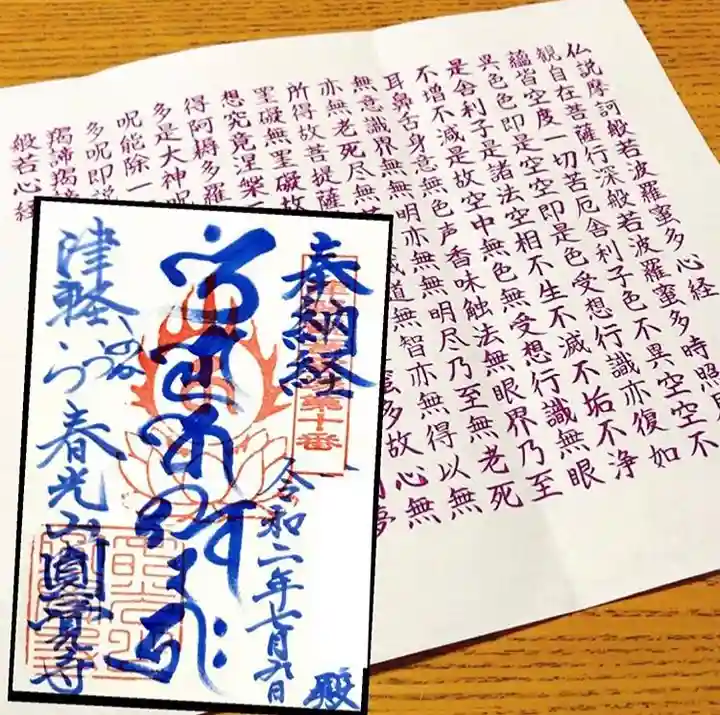 仏説摩訶般若波羅蜜多心経
観自在菩薩行深般若波羅蜜多時照
蘊皆空度一切苦厄舎利子色不異空空不
異色色即是空空即是色受想行識亦復如
是舎利子是諸法空相不生不滅不垢不浄
不増不減是故空中無色無受想行識無眼
耳鼻舌身意無色声香味触法無眼界乃至
無意識界無無明亦無無明尽乃至無老死
亦無老死尽無苦
道無智亦無得以無
所得故菩提薩
多故心無
罣礙無罣礙故
夢
想究竟涅槃
得阿耨多羅
多是大神呪
呪能除一
多呪即説
羯諦羯
般若心経
奉納経
第十番
令和二年七月九日
殿
津軽
春光山圓覚寺